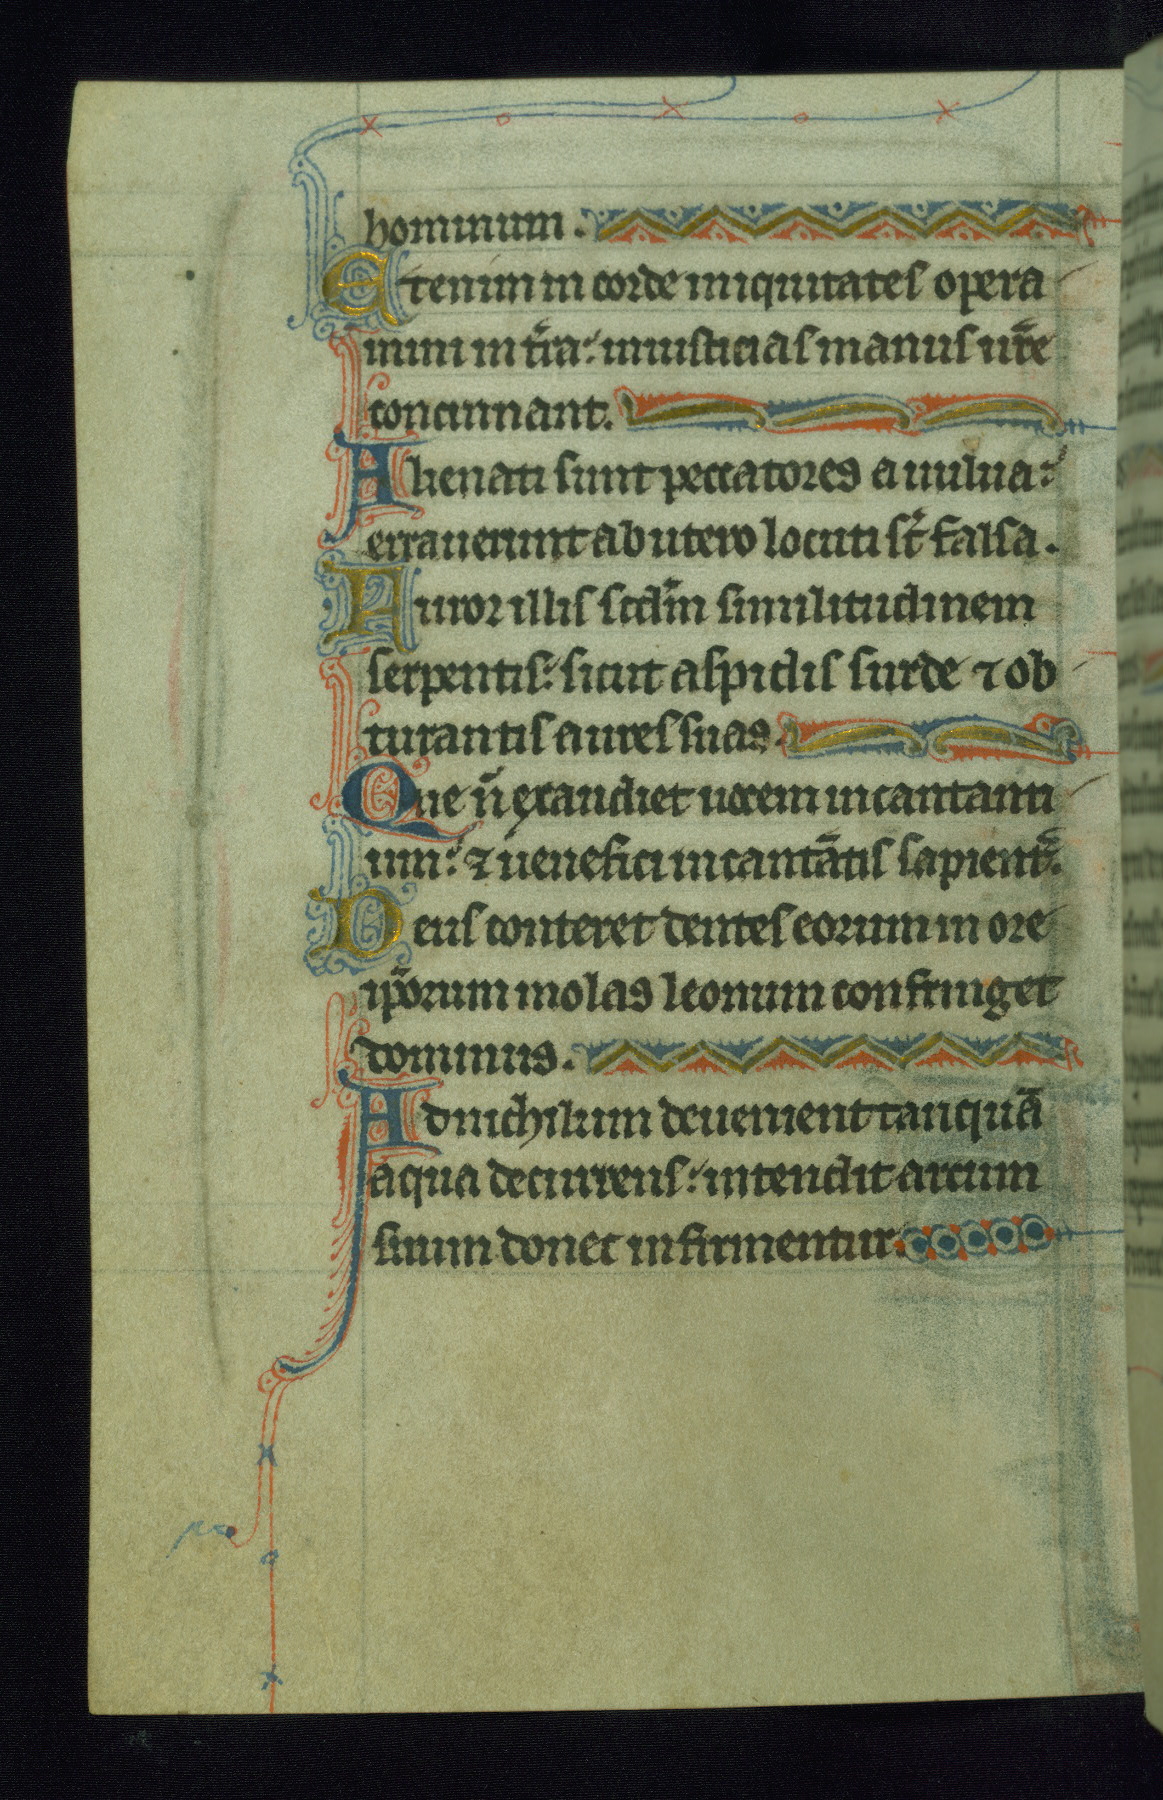 hominum.
Etenim in corde iniquitates opera
mini in t̄ra: iniusticias manus ur̄e
concinnant.
Alienati sunt peccatores a uulua:
errauerunt ab utero locuti st̄ falsa.
Furor illis scdm̄ similitudinem
serpentis: sicut aspidis surde ⁊ ob
turantis aures suas.
Que n̄ exaudiet uocem incantanti
um: ⁊ uenefici incantātis sapient̄.
Deus conteret dentes eorum in ore
ip̄orum molas leonum confringet
dominus.
Ad nichilum deuenient tanquā
aqua decurrens: intendit arcum
suum donec infirmentur.